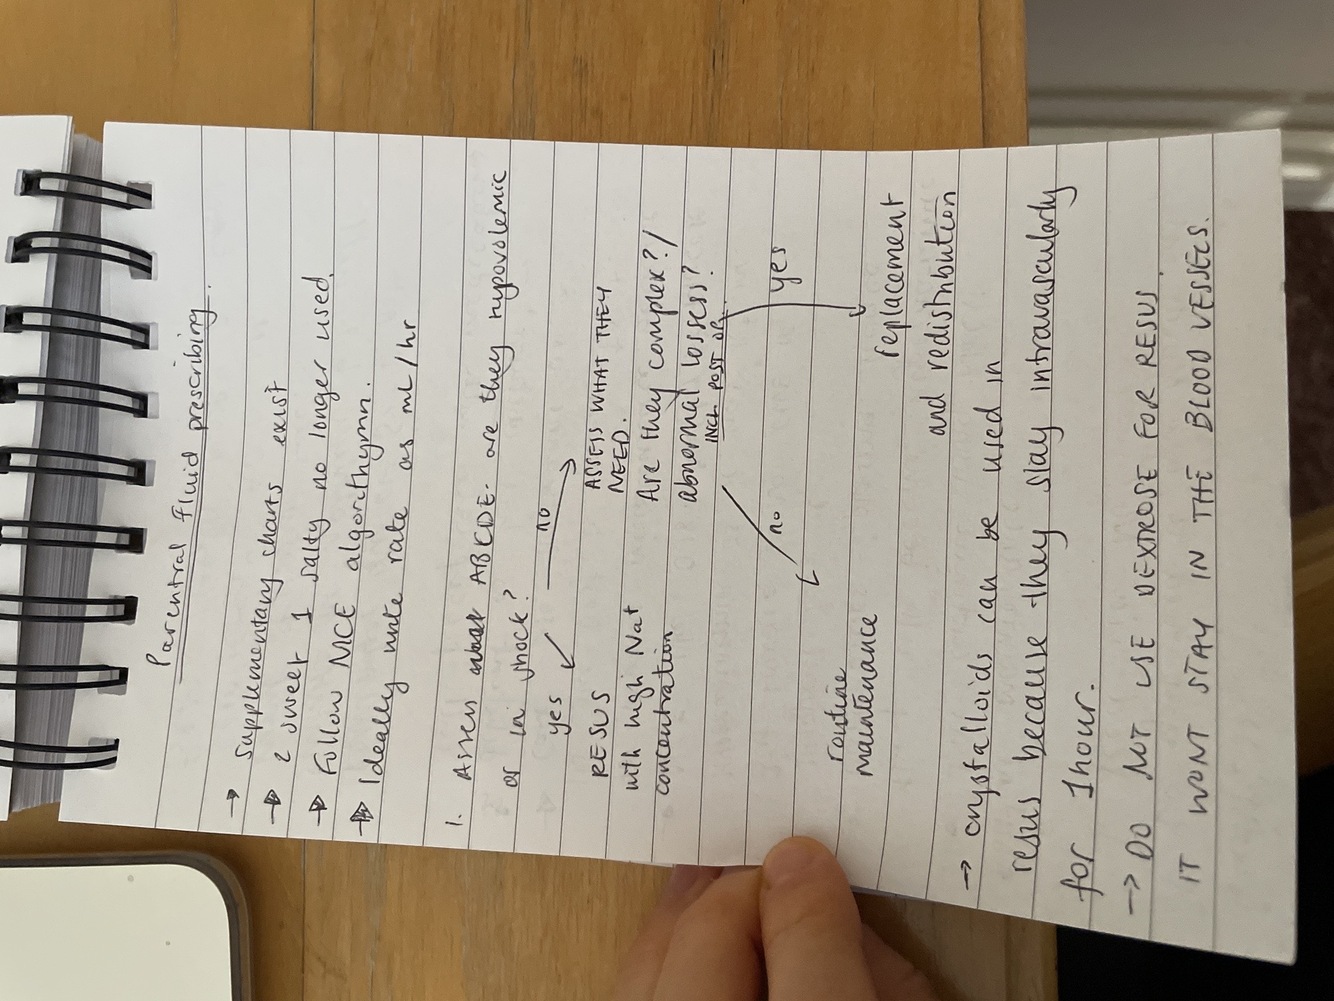 Parentral Fluid prescribing.
→ Supplementary charts exist
→ 2 sweet 1 salty no longer used.
→ Follow NICE algorithymn.
→ Ideally write rate as mL/hr
1. Assess ABCDE - are they hypovolemic
or in shock?
yes no
RESUS
with high Na+
concentration
ASSESS WHAT THEY
NEED.
Are they complex?/
abnormal losses?
INCL POST OP
no yes
routine
maintenance
replacement
and redistribution
→ crystalloids can be used in
resus because they stay intravascularly
for 1hour.
→ DO NOT USE DEXTROSE FOR RESUS.
IT WONT STAY IN THE BLOOD VESSELS.